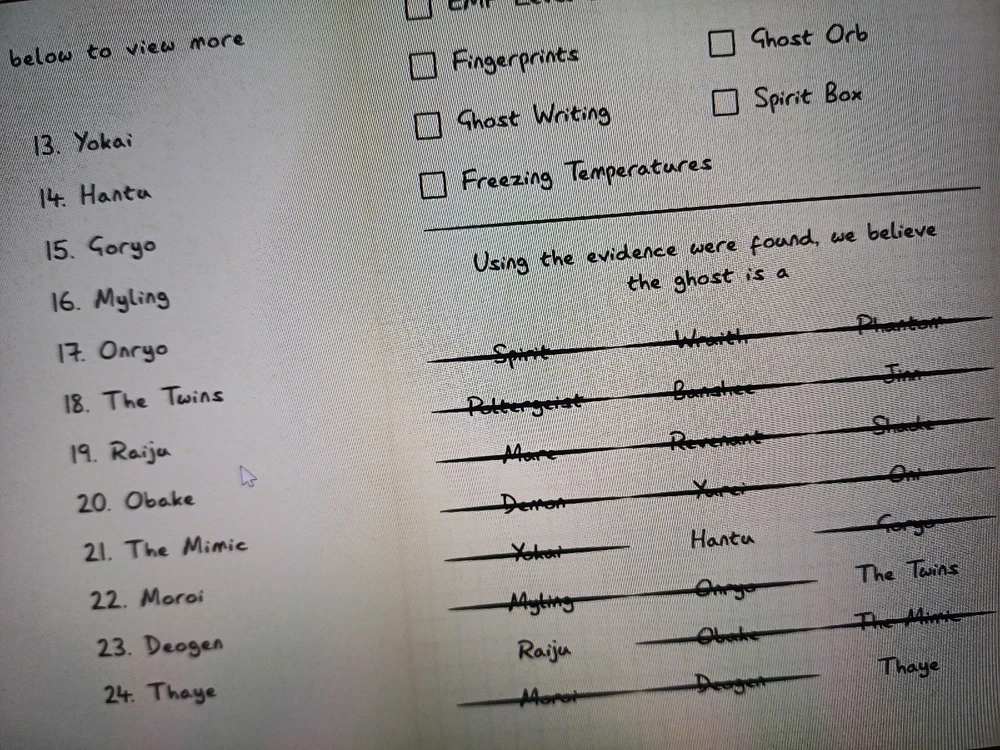 below to view more
13. Yokai
14. Hantu
15. Goryo
16. Myling
17. Onryo
18. The Twins
19. Raiju
20. Obake
21. The Mimic
22. Moroi
23. Deogen
24. Thaye
EMF
Fingerprints
Ghost Orb
Ghost Writing
Spirit Box
Freezing Temperatures
Using the evidence were found, we believe
the ghost is a
Spirit Wraith Phantom
Poltergeist Banshee Jinn
Mare Revenant Shade
Demon Yurei Oni
Yokai Hantu Goryo
Myling Onryo The Twins
Raiju Obake The Mimic
Moroi Deogen Thaye